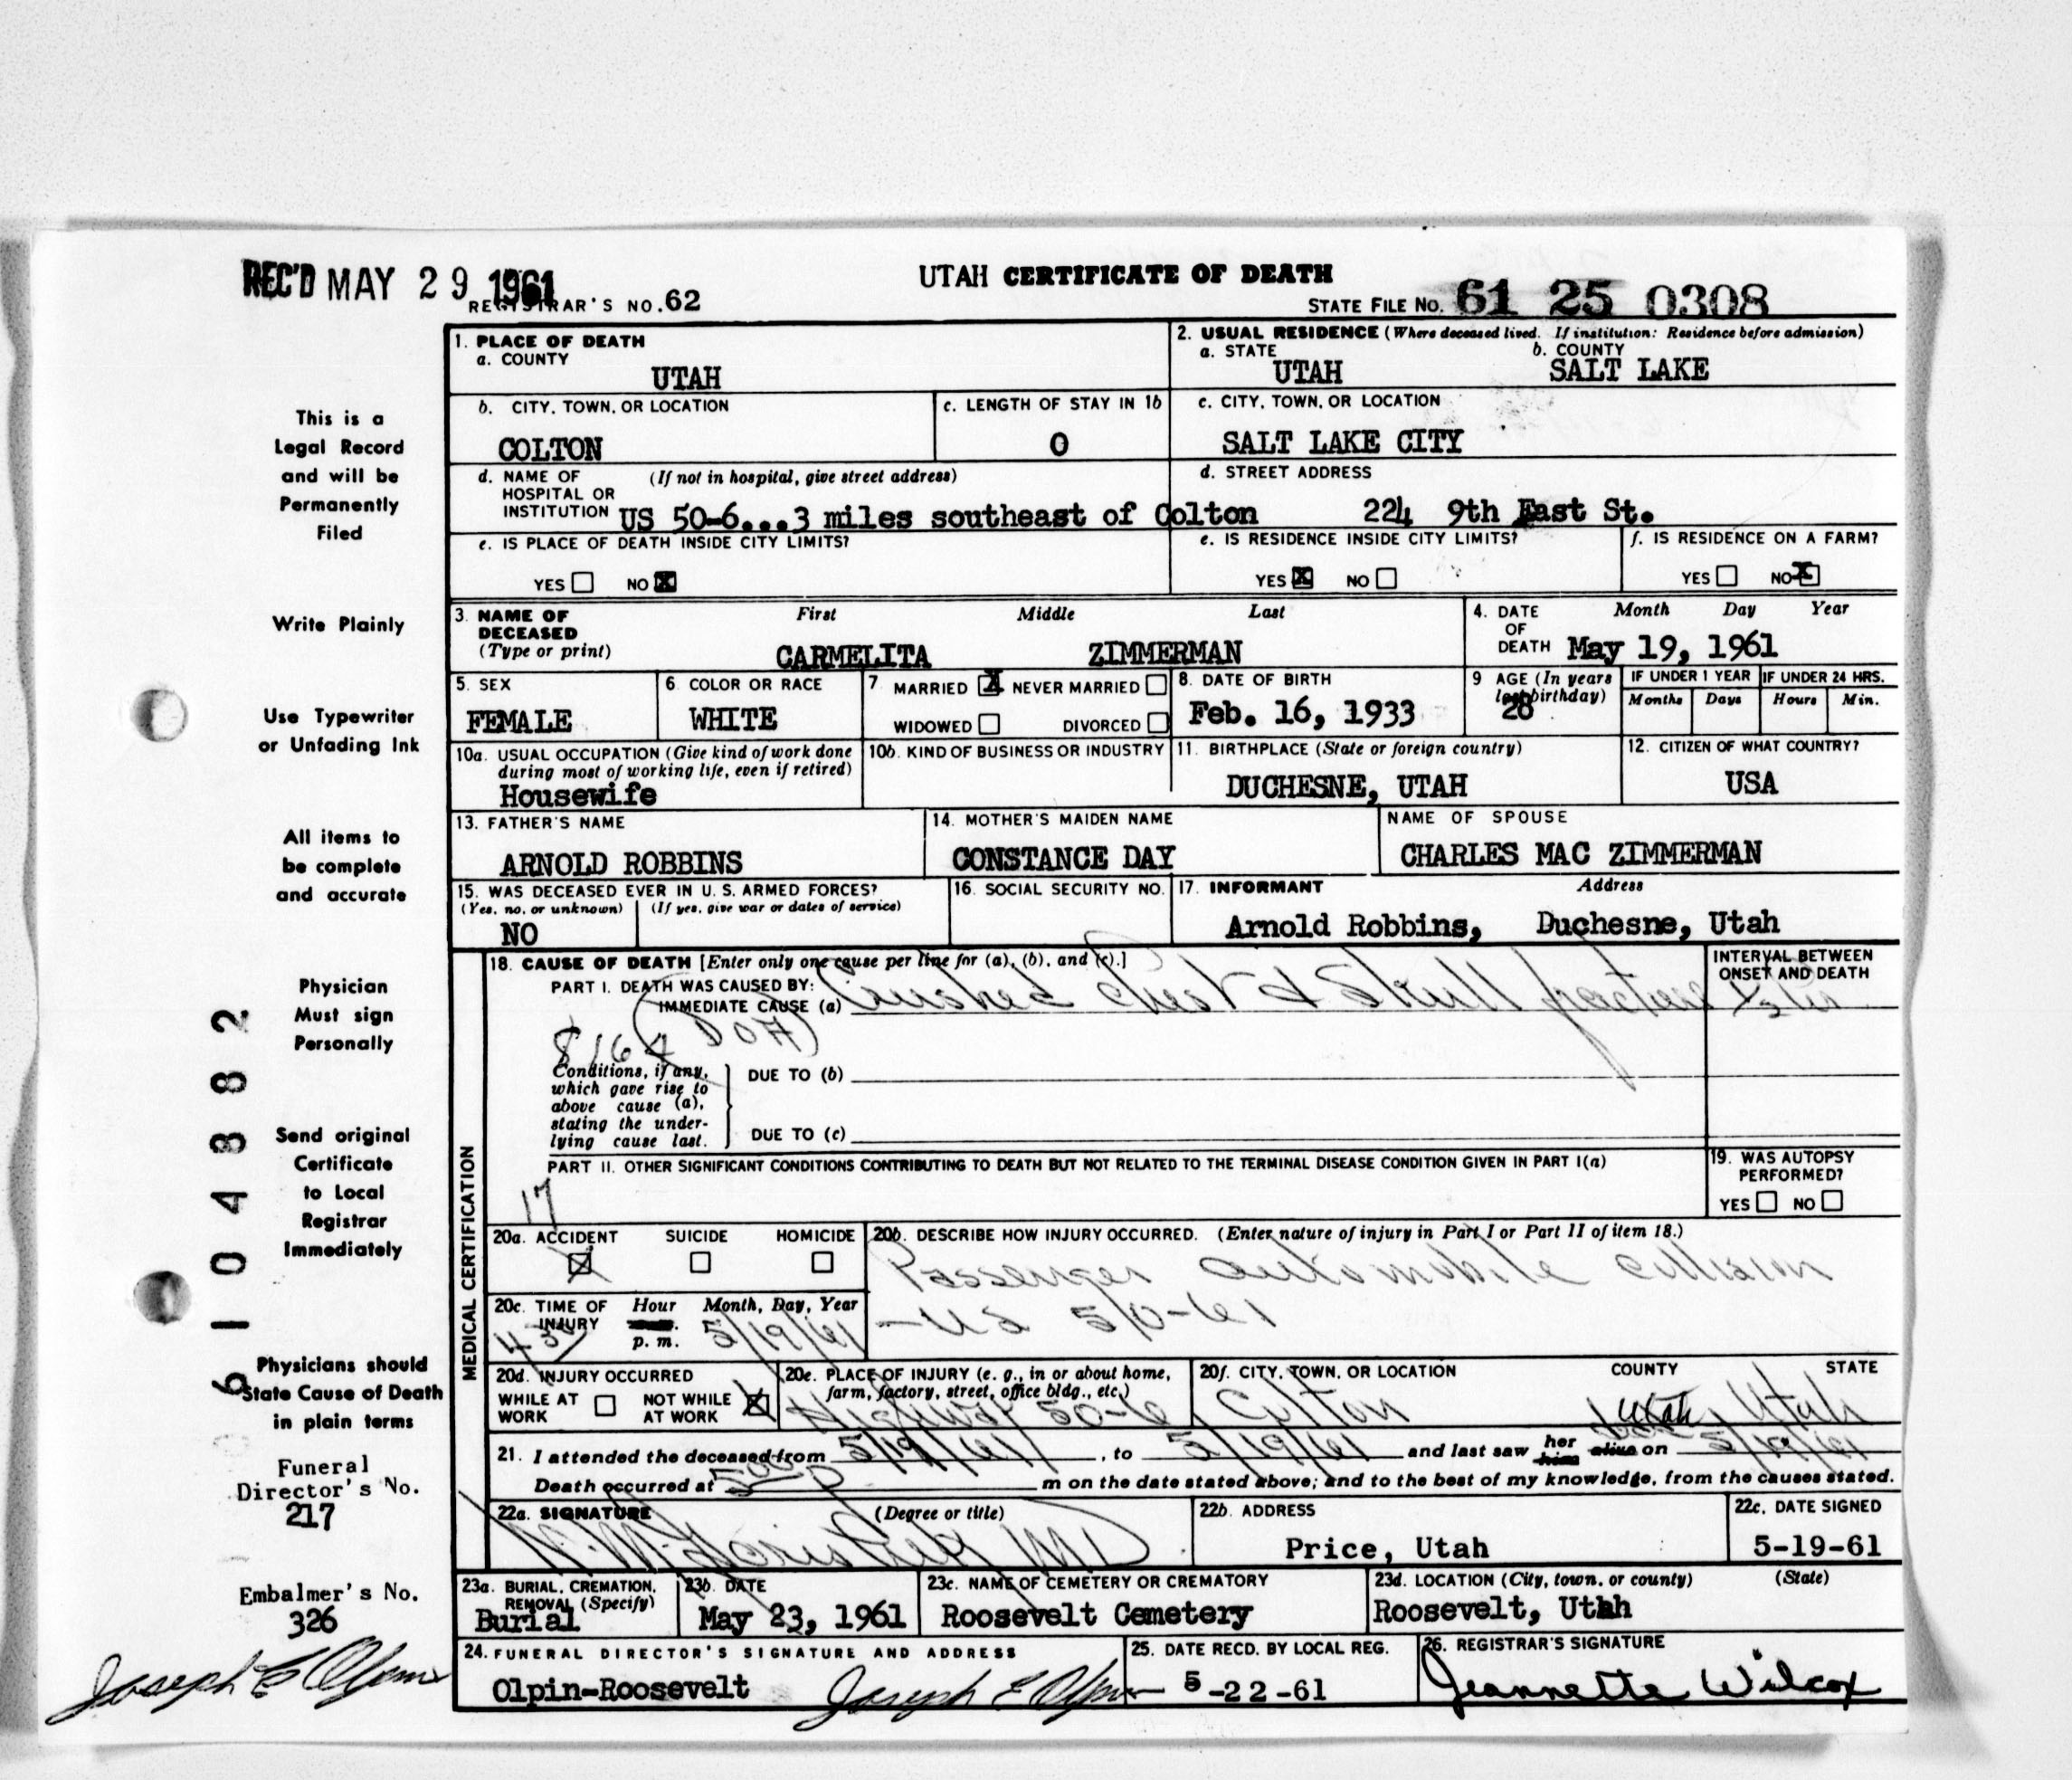 REC'D MAY 29 1961
UTAH CERTIFICATE OF DEATH
REGISTRAR'S NO. 62
STATE FILE NO. 61 25 0308
1. PLACE OF DEATH
a. COUNTY
UTAH
2. USUAL RESIDENCE (Where deceased lived. If institution: Residence before admission)
a. STATE
UTAH
b. COUNTY
SALT LAKE
b. CITY, TOWN, OR LOCATION
COLTON
c. LENGTH OF STAY IN 1b
0
c. CITY, TOWN, OR LOCATION
SALT LAKE CITY
d. NAME OF HOSPITAL OR INSTITUTION (If not in hospital, give street address)
US 50-6...3 miles southeast of Colton
d. STREET ADDRESS
224 9th East St.
e. IS PLACE OF DEATH INSIDE CITY LIMITS?
YES NO X
e. IS RESIDENCE INSIDE CITY LIMITS?
YES X NO
f. IS RESIDENCE ON A FARM?
YES NO X
3. NAME OF DECEASED (Type or print)
First Middle Last
CARMELITA ZIMMERMAN
4. DATE OF DEATH
Month Day Year
May 19, 1961
5. SEX
FEMALE
6. COLOR OR RACE
WHITE
7 MARRIED X NEVER MARRIED
WIDOWED DIVORCED
8. DATE OF BIRTH
Feb. 16, 1933
9 AGE (In years last birthday)
28
IF UNDER 1 YEAR
Months Days
IF UNDER 24 HRS.
Hours Min.
10a. USUAL OCCUPATION (Give kind of work done during most of working life, even if retired)
Housewife
10b. KIND OF BUSINESS OR INDUSTRY
11. BIRTHPLACE (State or foreign country)
DUCHESNE, UTAH
12. CITIZEN OF WHAT COUNTRY?
USA
13. FATHER'S NAME
ARNOLD ROBBINS
14. MOTHER'S MAIDEN NAME
CONSTANCE DAY
NAME OF SPOUSE
CHARLES MAC ZIMMERMAN
15. WAS DECEASED EVER IN U. S. ARMED FORCES?
(Yes, no, or unknown) (If yes, give war or dates of service)
NO
16. SOCIAL SECURITY NO.
17. INFORMANT Address
Arnold Robbins, Duchesne, Utah
MEDICAL CERTIFICATION
18. CAUSE OF DEATH [Enter only one cause per line for (a), (b), and (c).]
PART I. DEATH WAS CAUSED BY:
IMMEDIATE CAUSE (a) Crushed Chest & Skull fracture
(DOA)
INTERVAL BETWEEN ONSET AND DEATH
8164
Conditions, if any, which gave rise to above cause (a), stating the underlying cause last.
DUE TO (b)
DUE TO (c)
PART II. OTHER SIGNIFICANT CONDITIONS CONTRIBUTING TO DEATH BUT NOT RELATED TO THE TERMINAL DISEASE CONDITION GIVEN IN PART I(a)
17
19. WAS AUTOPSY PERFORMED?
YES NO
20a. ACCIDENT X SUICIDE HOMICIDE
20b. DESCRIBE HOW INJURY OCCURRED. (Enter nature of injury in Part I or Part II of item 18.)
Passenger automobile collision
-US
20c. TIME OF INJURY Hour Month, Day, Year
p. m. 5/19/61
20d. INJURY OCCURRED
WHILE AT WORK NOT WHILE AT WORK X
20e. PLACE OF INJURY (e. g., in or about home, farm, factory, street, office bldg., etc.)
Highway 50-6
20f. CITY, TOWN, OR LOCATION COUNTY STATE
Colton Utah Utah
21. I attended the deceased from 5/19/61, to 5/19/61 and last saw her him alive on 5/19/61
Death occurred at 500 P m on the date stated above; and to the best of my knowledge, from the causes stated.
22a. SIGNATURE (Degree or title)
MD
22b. ADDRESS
Price, Utah
22c. DATE SIGNED
5-19-61
23a. BURIAL, CREMATION, REMOVAL (Specify)
Burial
23b. DATE
May 23, 1961
23c. NAME OF CEMETERY OR CREMATORY
Roosevelt Cemetery
23d. LOCATION (City, town, or county) (State)
Roosevelt, Utah
24. FUNERAL DIRECTOR'S SIGNATURE AND ADDRESS
Olpin-Roosevelt Joseph E Olpin
25. DATE RECD. BY LOCAL REG.
5-22-61
26. REGISTRAR'S SIGNATURE
Jeannette Wilcox
This is a
Legal Record
and will be
Permanently
Filed
Write Plainly
Use Typewriter
or Unfading Ink
All items to
be complete
and accurate
Physician
Must sign
Personally
Send original
Certificate
to Local
Registrar
Immediately
Physicians should
State Cause of Death
in plain terms
Funeral
Director's No.
217
Embalmer's No.
326
Joseph E Olpin
6104382